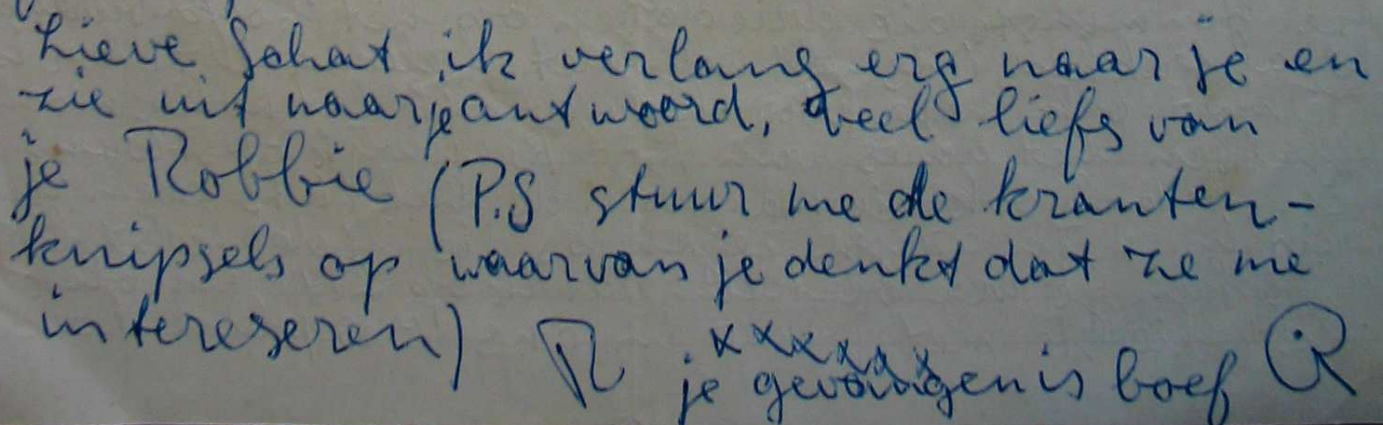 Lieve Schat ik verlang erg naar je en
zie uit naar je antwoord, veel liefs van
je Robbie (P.S stuur me de kranten-
knipsels op waarvan je denkt dat ze me
intereseren) R . xxxxxxx
je gevangenis boef R